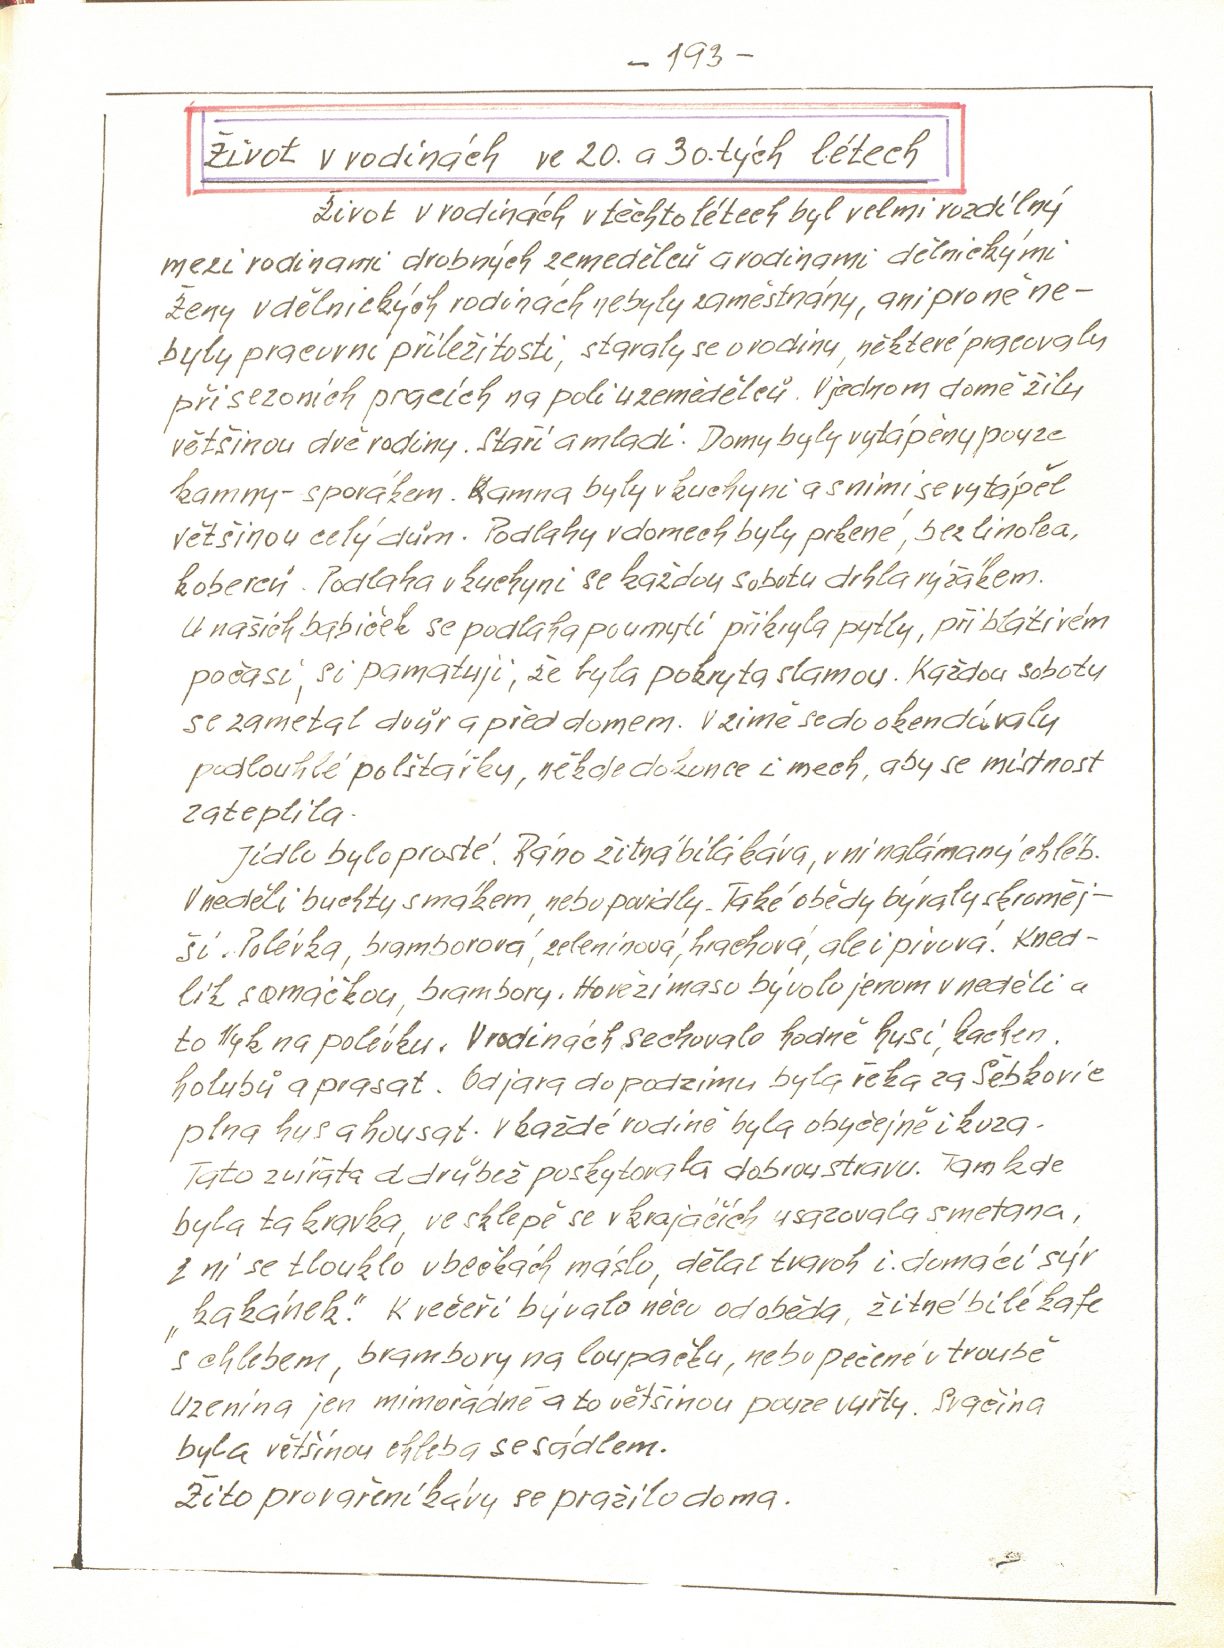 - 193 -
Život v rodinách ve 20. a 30.tých létech
Život v rodinách v těchto létech byl velmi rozdílný
mezi rodinami drobných zemědělců a rodinami dělnickými
Ženy v dělnických rodinách nebyly zaměstnány, ani pro ně ne-
byly pracovní příležitosti, staraly se o rodinu, některé pracovaly
při sezoních pracích na poli u zemědělců. V jednom domě žily
většinou dvě rodiny. Staří a mladí. Domy byly vytápěny pouze
kamny - sporákem. Kamna byly v kuchyni a s nimi se vytápěl
většinou celý dům. Podlahy v domech byly prkené, bez linolea,
koberců. Podlaha v kuchyni se každou sobotu drhla rýžákem.
U našich babiček se podlaha po umytí přikryla pytly, při blátivém
počasí, si pamatuji, že byla pokryta slamou. Každou sobotu
se zametal dvůr a před domem. V zimě se do oken dávaly
podlouhlé polštářky, někde dokonce i mech, aby se místnost
zateplila.
Jídlo bylo prosté. Ráno žitná bílá káva, v ní nalámaný chléb.
V neděli buchty s mákem, nebo povidly. Také obědy bývaly skroměj-
ší. Polévka, bramborová, zeleninová, hrachová, ale i pivová. Kned-
lík s omáčkou, brambory. Hovězí maso bývolo jenom v neděli a
to 1/4k na polévku. V rodinách se chovalo hodně husí, kachen.
holubů a prasat. Od jara do podzimu byla řeka za Šebkovic
plna hus a housat. V každé rodině byla obyčejně i koza.
Tato zvířata a drůbež poskytovala dobrou stravu. Tam kde
byla ta kravka, ve sklepě se v krajáčích usazovala smetana,
z ní se tlouklo v bečkách máslo, dělal tvaroh i domácí sýr
„kakánek." K večeři bývalo něco od oběda, žitné bílé kafe
s chlebem, brambory na loupačku, nebo pečené v troubě
Uzenina jen mimořádně a to většinou pouze vuřty. Svačina
byla většinou chleba se sádlem.
Žito pro vaření kávy se pražilo doma.